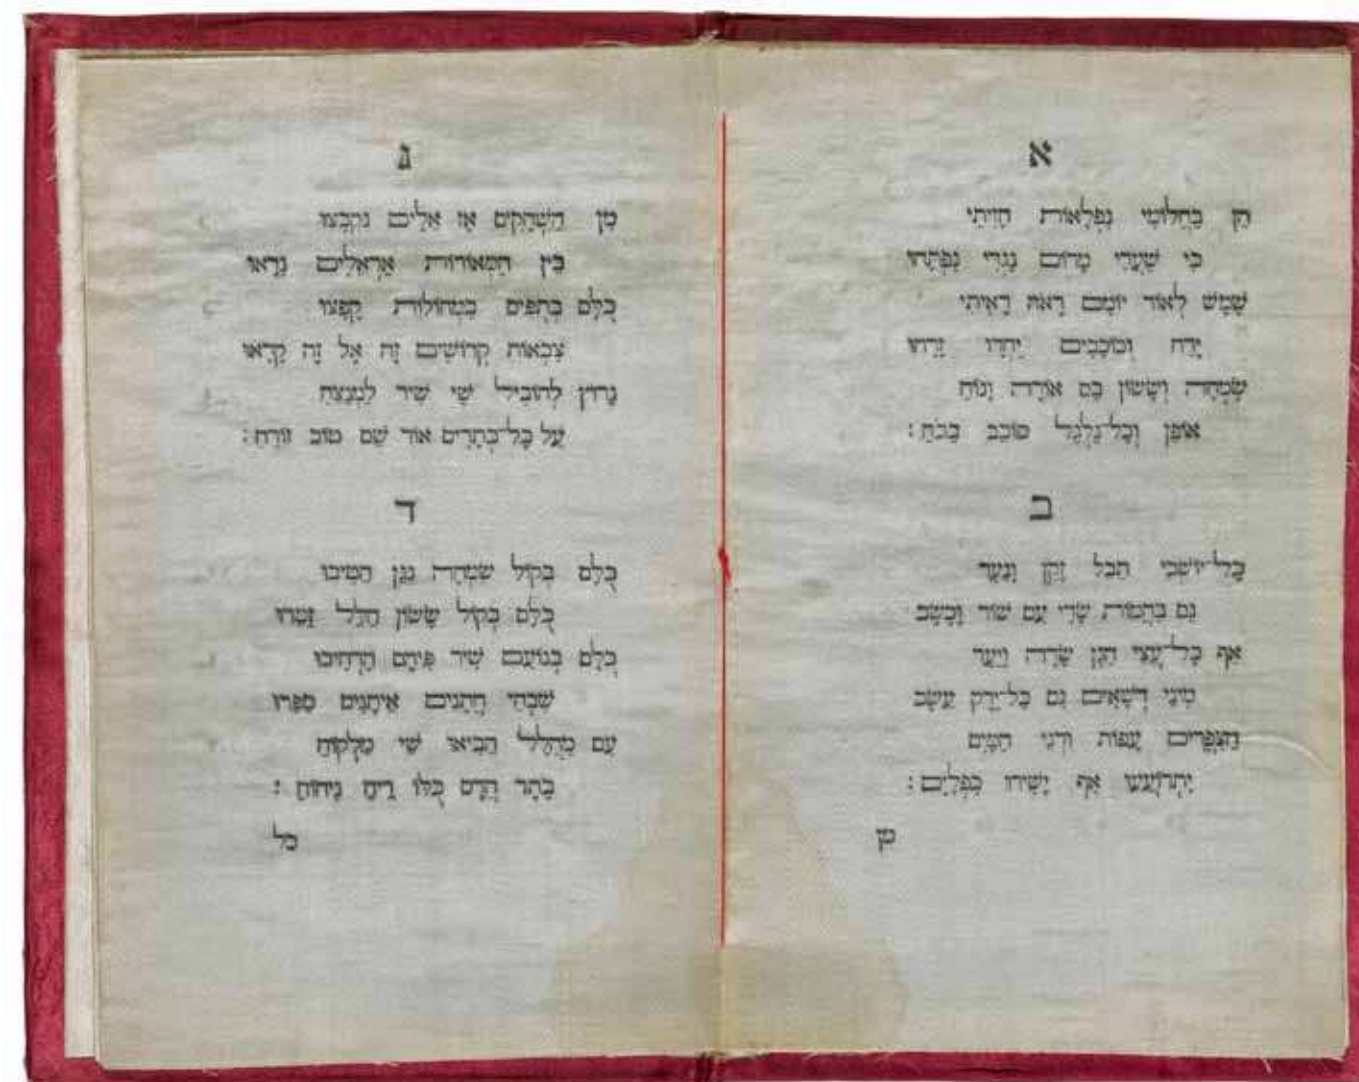 א
הֵן בַּחֲלוֹמִי נִפְלָאוֹת חָזִיתִי
כִּי שַׁעֲרֵי מָרוֹם נֶגְדִּי נִפְתָּחוּ
שֶׁמֶשׁ לְאוֹר יוֹמָם רָאֹה רָאִיתִי
יָרֵחַ וְכוֹכָבִים יַחְדָּו זָרָחוּ
שִׂמְחָה וְשָׂשׂוֹן גַּם אוֹרָה וָנוֹחַ
אוֹפַן וְכָל־גַּלְגַּל סוֹבֵב בַּכֹּחַ:
ב
כָּל־יוֹשְׁבֵי תֵבֵל זָקֵן וָנַעַר
גַּם בַּהֲמוֹת שָׂדַי עִם שׁוֹר וָכֶשֶׂב
אַף כָּל־עֲצֵי הַגָּן שָׂדֶה וָיַעַר
מִינֵי דְשָׁאִים גַּם כָּל־יֶרֶק עֵשֶׂב
הַצִּפֳּרִים עָפוֹת וּדְגֵי הַמַּיִם
יִתְרוֹעֲעוּ אַף יָשִׁירוּ כִּפְלָיִם:
מִן
ג
מִן הַשְּׁחָקִים אָז אֵלִים נִקְבָּצוּ
בֵּין הַמְּאוֹרוֹת אֶרְאֶלִּים נִרְאוּ
כֻּלָּם בְּתֻפִּים בִּמְחוֹלוֹת קָפָצוּ
צִבְאוֹת קְדוֹשִׁים זֶה אֶל זֶה קָרְאוּ
נָרוּץ לְהוֹבִיל שַׁי שִׁיר לַמְנַצֵּחַ
עַל כָּל־כְּתָרִים אוֹר שֵׁם טוֹב זוֹרֵחַ:
ד
כֻּלָּם בְּקוֹל שִׂמְחָה נַגֵּן הֵטִיבוּ
כֻּלָּם בְּקוֹל שָׂשׂוֹן הַלֵּל זִמֵּרוּ
כֻּלָּם בְּנוֹעַם שִׁיר פִּיהֶם הִרְחִיבוּ
שִׁבְחֵי חֲתָנִים אֵיתָנִים סִפֵּרוּ
עִם מַהֲלָל הֵבִיאוּ שַׁי מַלְקוֹחַ
כֶּתֶר הֲדַס כֻּלּוֹ רֵיחַ נִיחוֹחַ:
כל